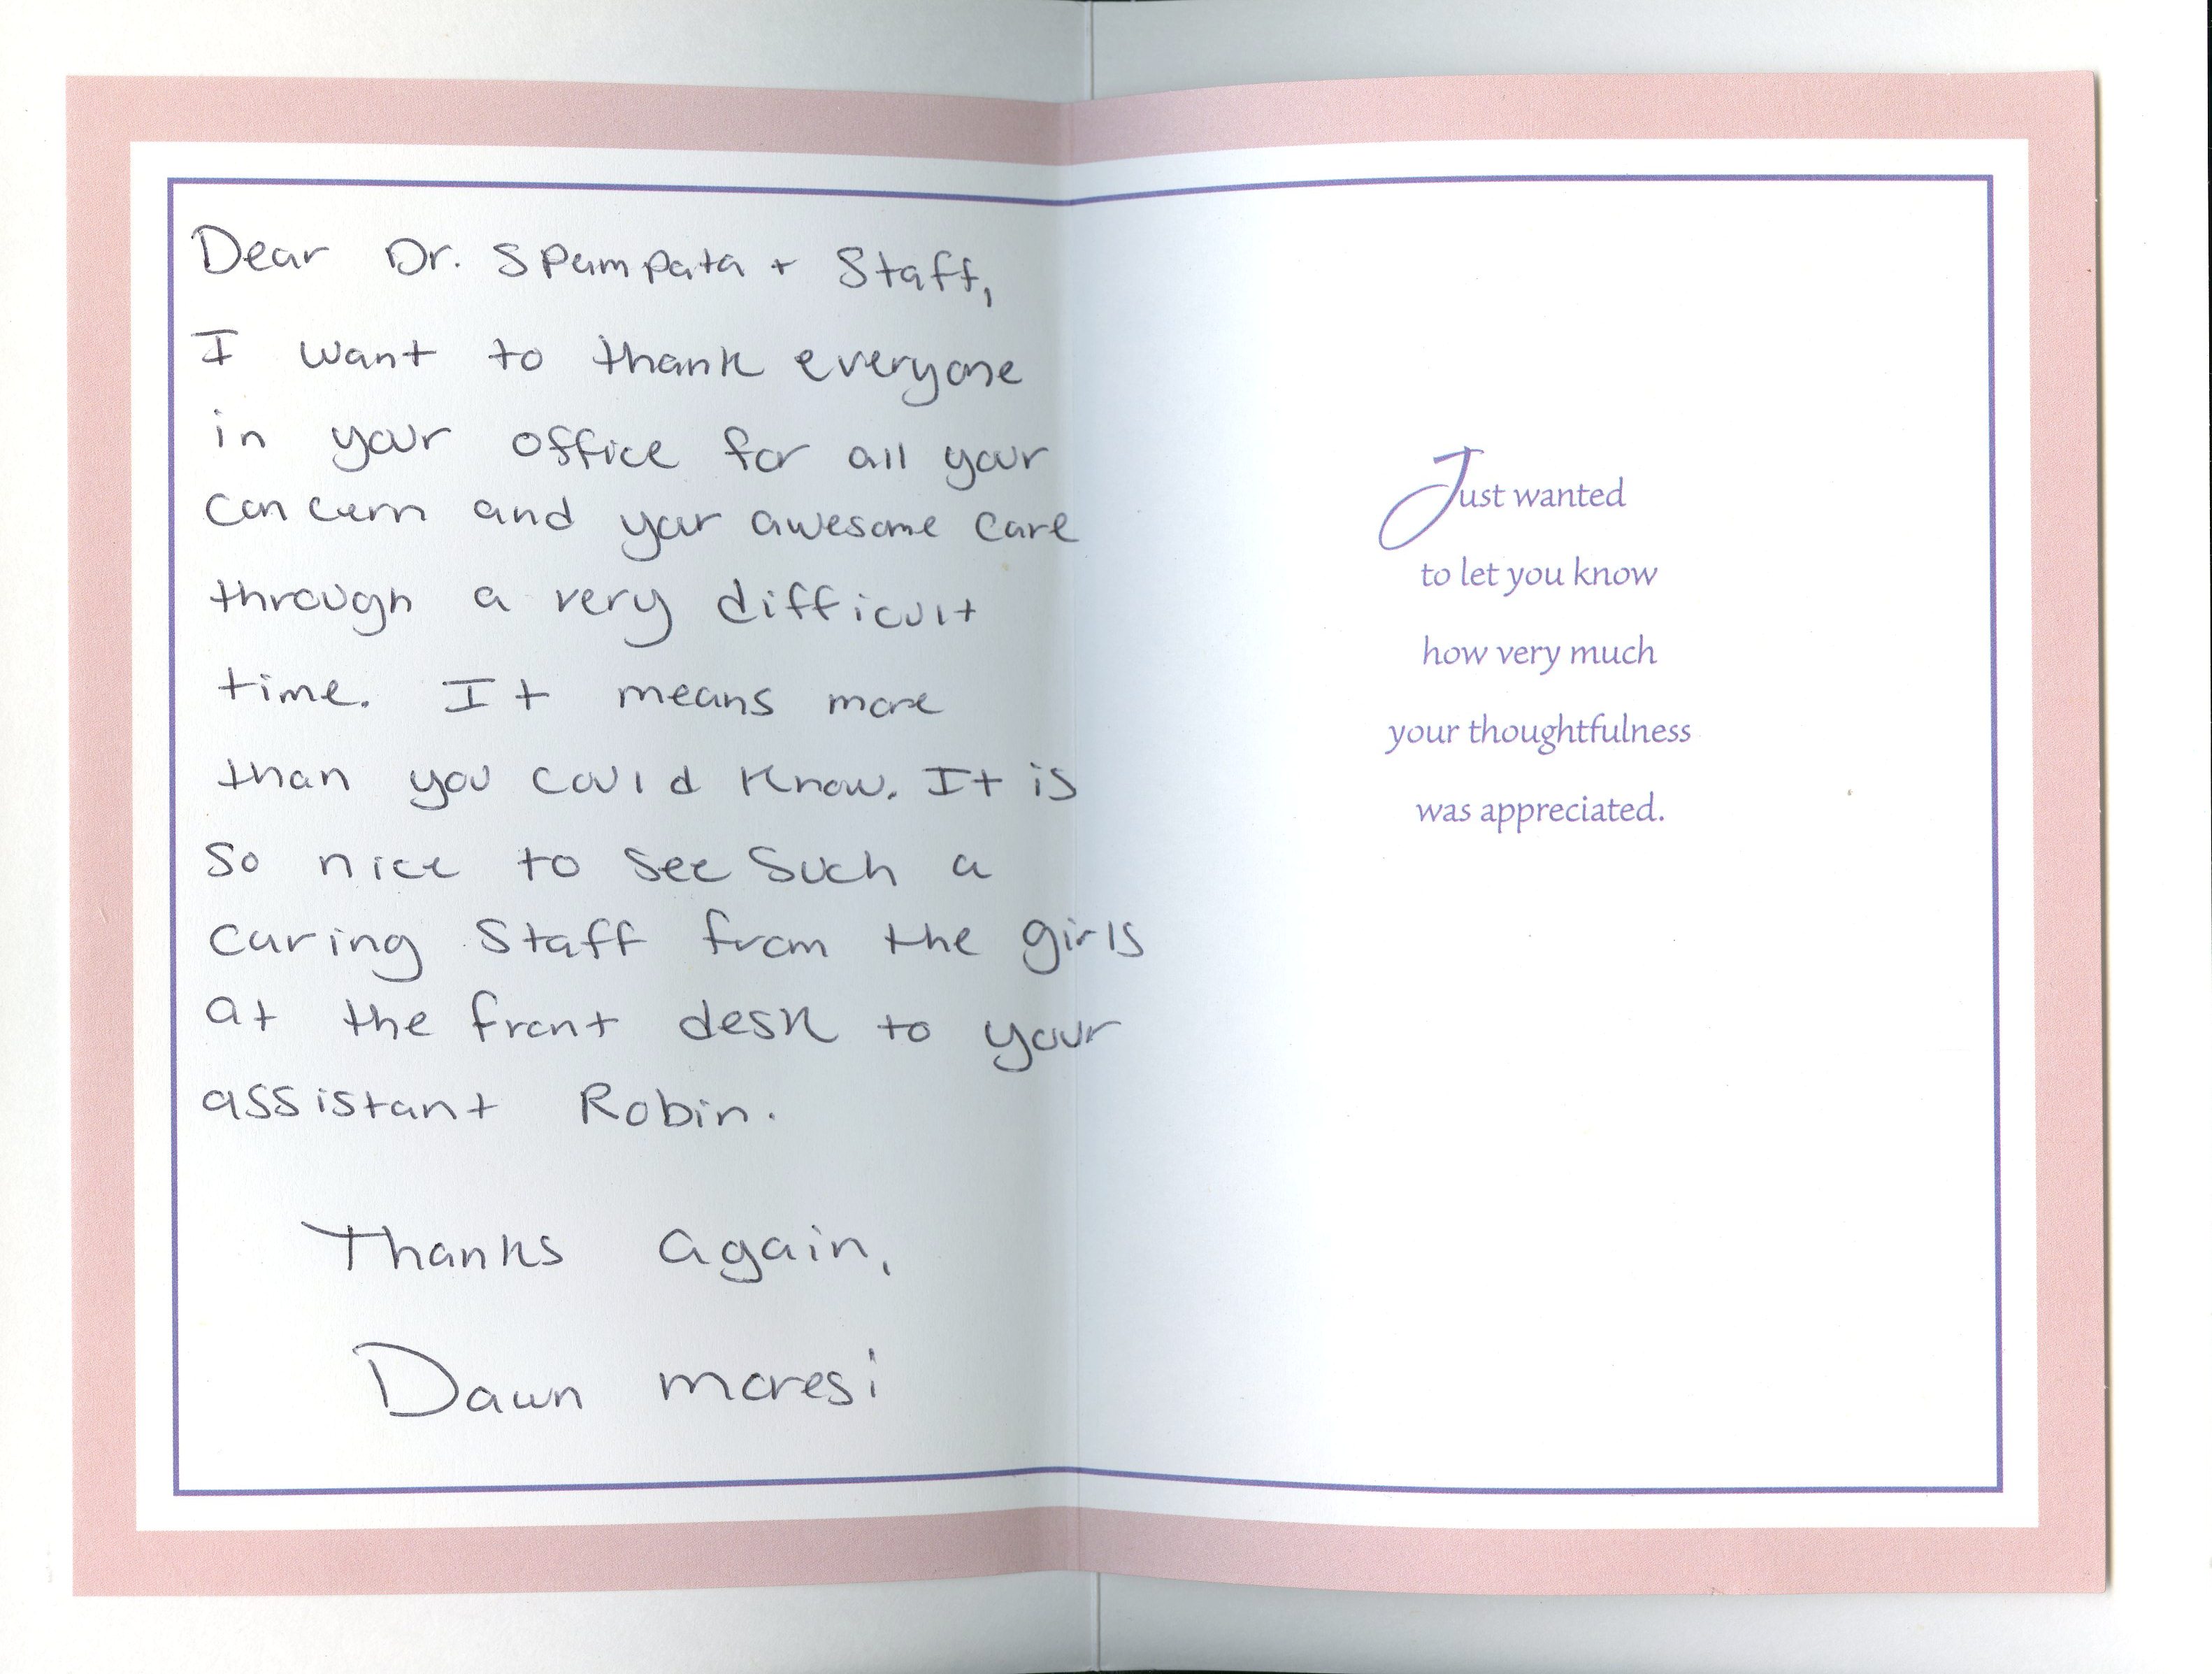 Dear Dr. Spampata + Staff,
I want to thank everyone
in your office for all your
concern and your awesome care
through a very difficult
time. It means more
than you could know. It is
so nice to see such a
caring staff from the girls
at the front desk to your
assistant Robin.
Thanks again,
Dawn moresi
Just wanted
to let you know
how very much
your thoughtfulness
was appreciated.